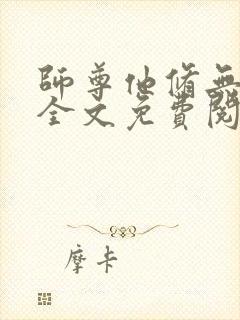 師尊他脩無
全文免費閱
摩卡